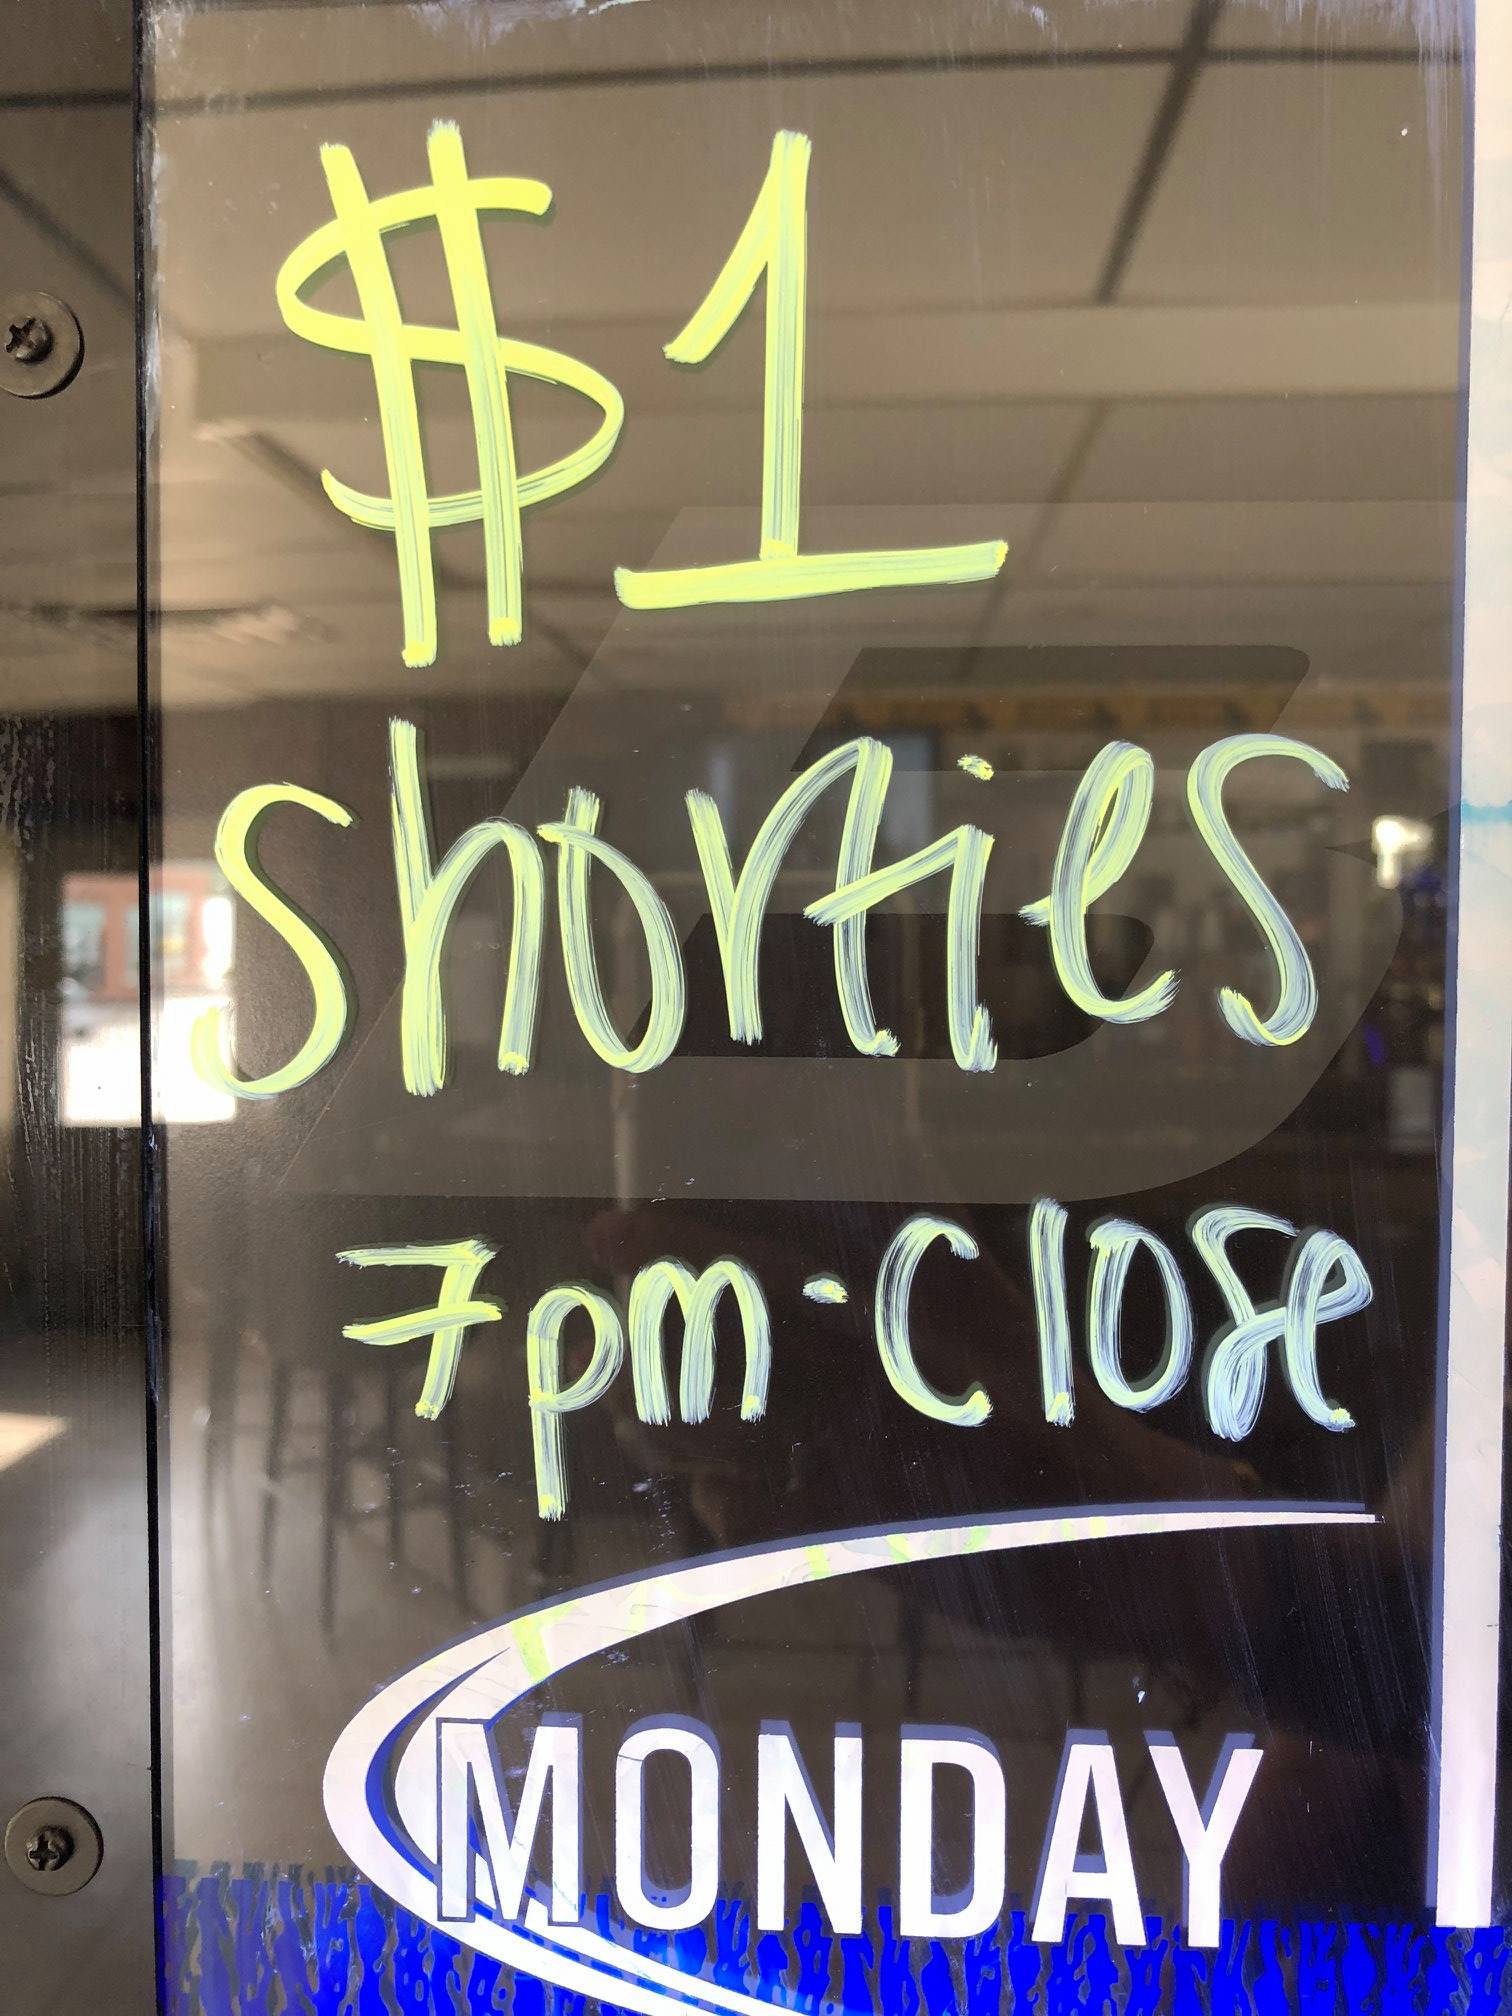 $1
shorties
7pm-close
MONDAY